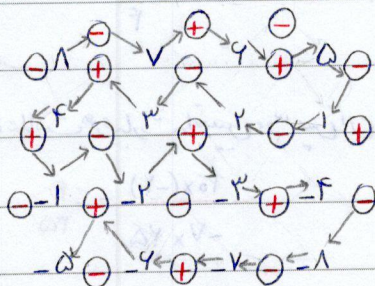 - + -
- ۸ + ۷ - ۶ + ۵ -
+ ۴ - ۳ + ۲ - ۱ +
- -۱ + -۲ - -۳ + -۴ -
-۵ - -۶ + -۷ - -۸